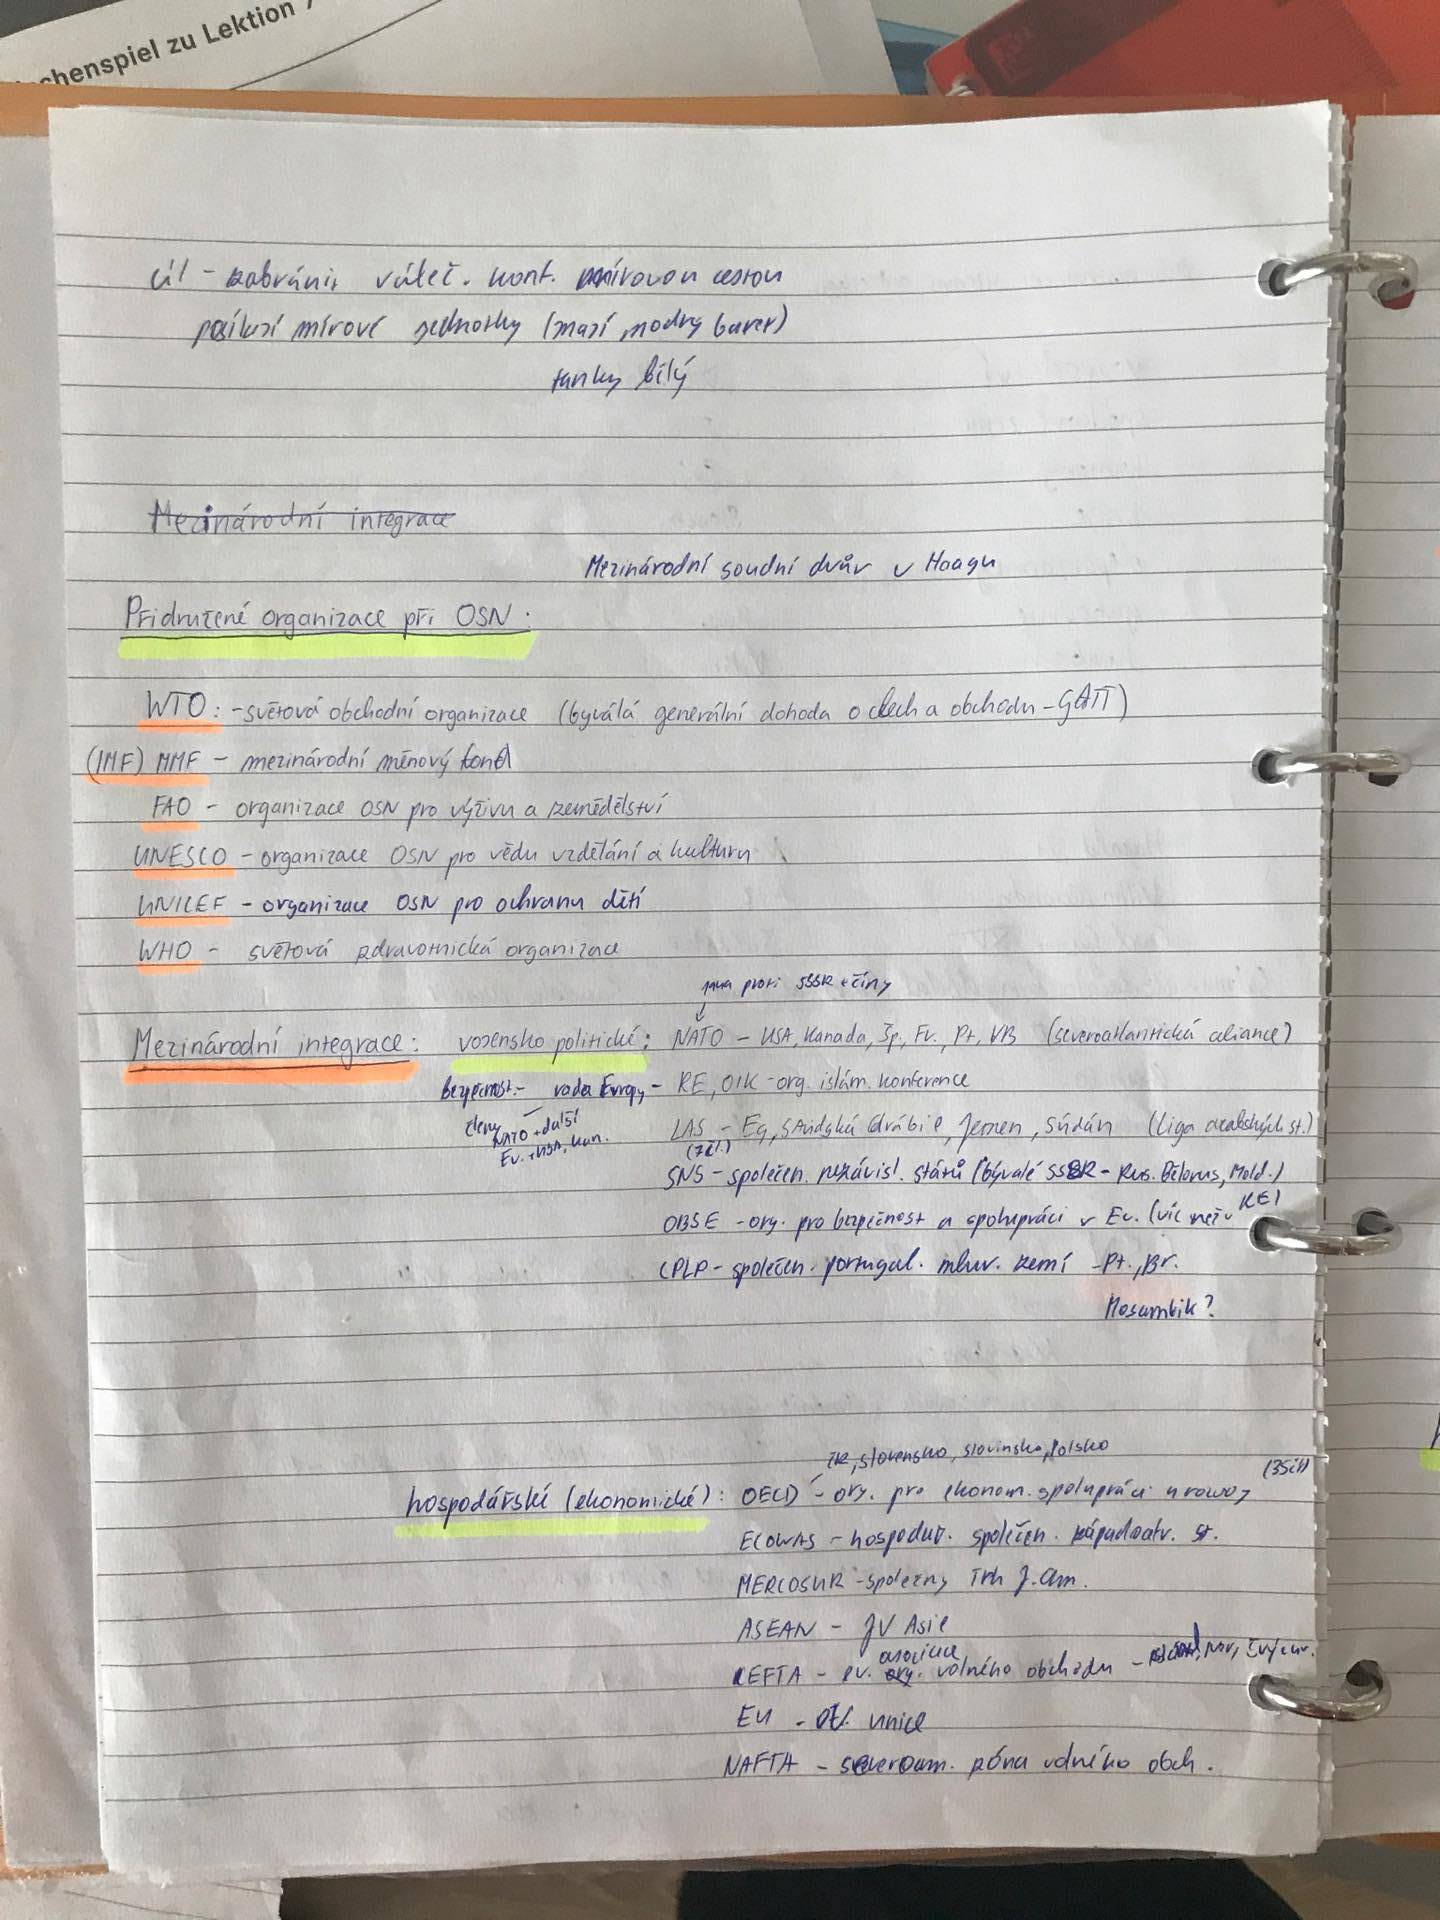 chenspiel zu Lektion
cíl - zabránit váleč. konf. mírovou cestou
posílají mírové jednotky (mají modrý baret)
tanky bílý
Mezinárodní integrace
Mezinárodní soudní dvůr v Haagu
Přidružené organizace při OSN:
WTO: - světová obchodní organizace (bývalá generální dohoda o clech a obchodu - GATT)
(IMF) MMF - mezinárodní měnový fond
FAO - organizace OSN pro výživu a zemědělství
UNESCO - organizace OSN pro vědu vzdělání a kulturu
UNICEF - organizace OSN pro ochranu dětí
WHO - světová zdravotnická organizace
proti SSSR + číny
Mezinárodní integrace: vojensko politické: NATO - USA, Kanada, Šp., Fr., Pt, VB (severoatlantická aliance)
bezpečnost. - rada Evropy - RE, OIK - org. islám. konference
členy NATO + další
Ev. + USA, Kan.
LAS - Eg, SAudská Arábie, Jemen, Súdán (Liga arabských st.)
(zél.)
SNS - společen. nezávisl. států (bývalé SSSR - Rus. Bělorus, Mold.)
OBSE - org. pro bezpečnost a spolupráci v Ev. (víc než v RE)
CPLP - společen. portugal. mluv. zemí - Pt., Br.
Mosambik?
ČR, Slovensko, Slovinsko, Polsko
hospodářské (ekonomické): OECD - org. pro ekonom. spolupráci u rozvoj
ECOWAS - hospodář. společen. západoafr. st.
MERCOSUR - společný trh J. Am.
ASEAN - JV Asie
asociace
EFTA - ev. org. volného obchodu - Island, Nor, Švýcar.
EU - ev. unice
NAFTA - severoam. zóna volného obch.